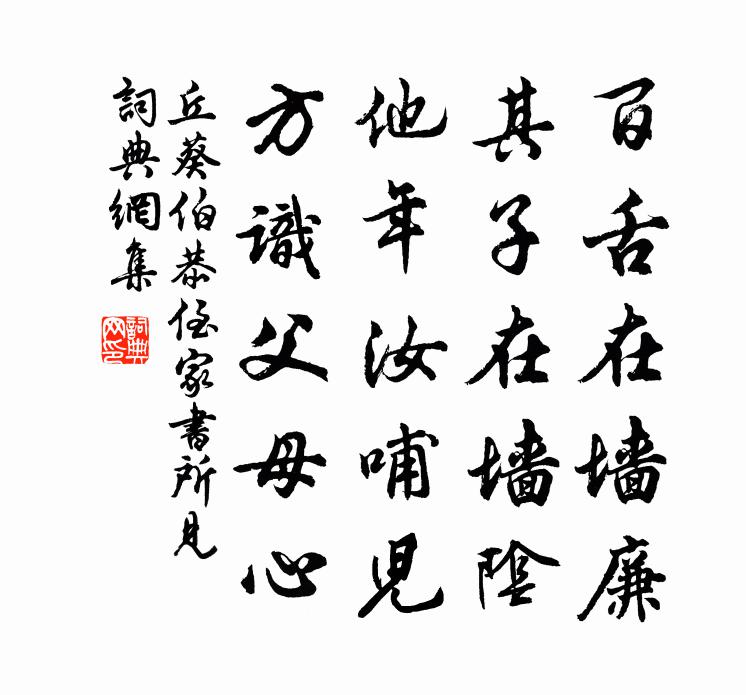 百舌在墙廉
其子在墙陰
他年汝哺児
方識父母心
丘葵伯恭侄家書所見
詞典網集
詞典网印